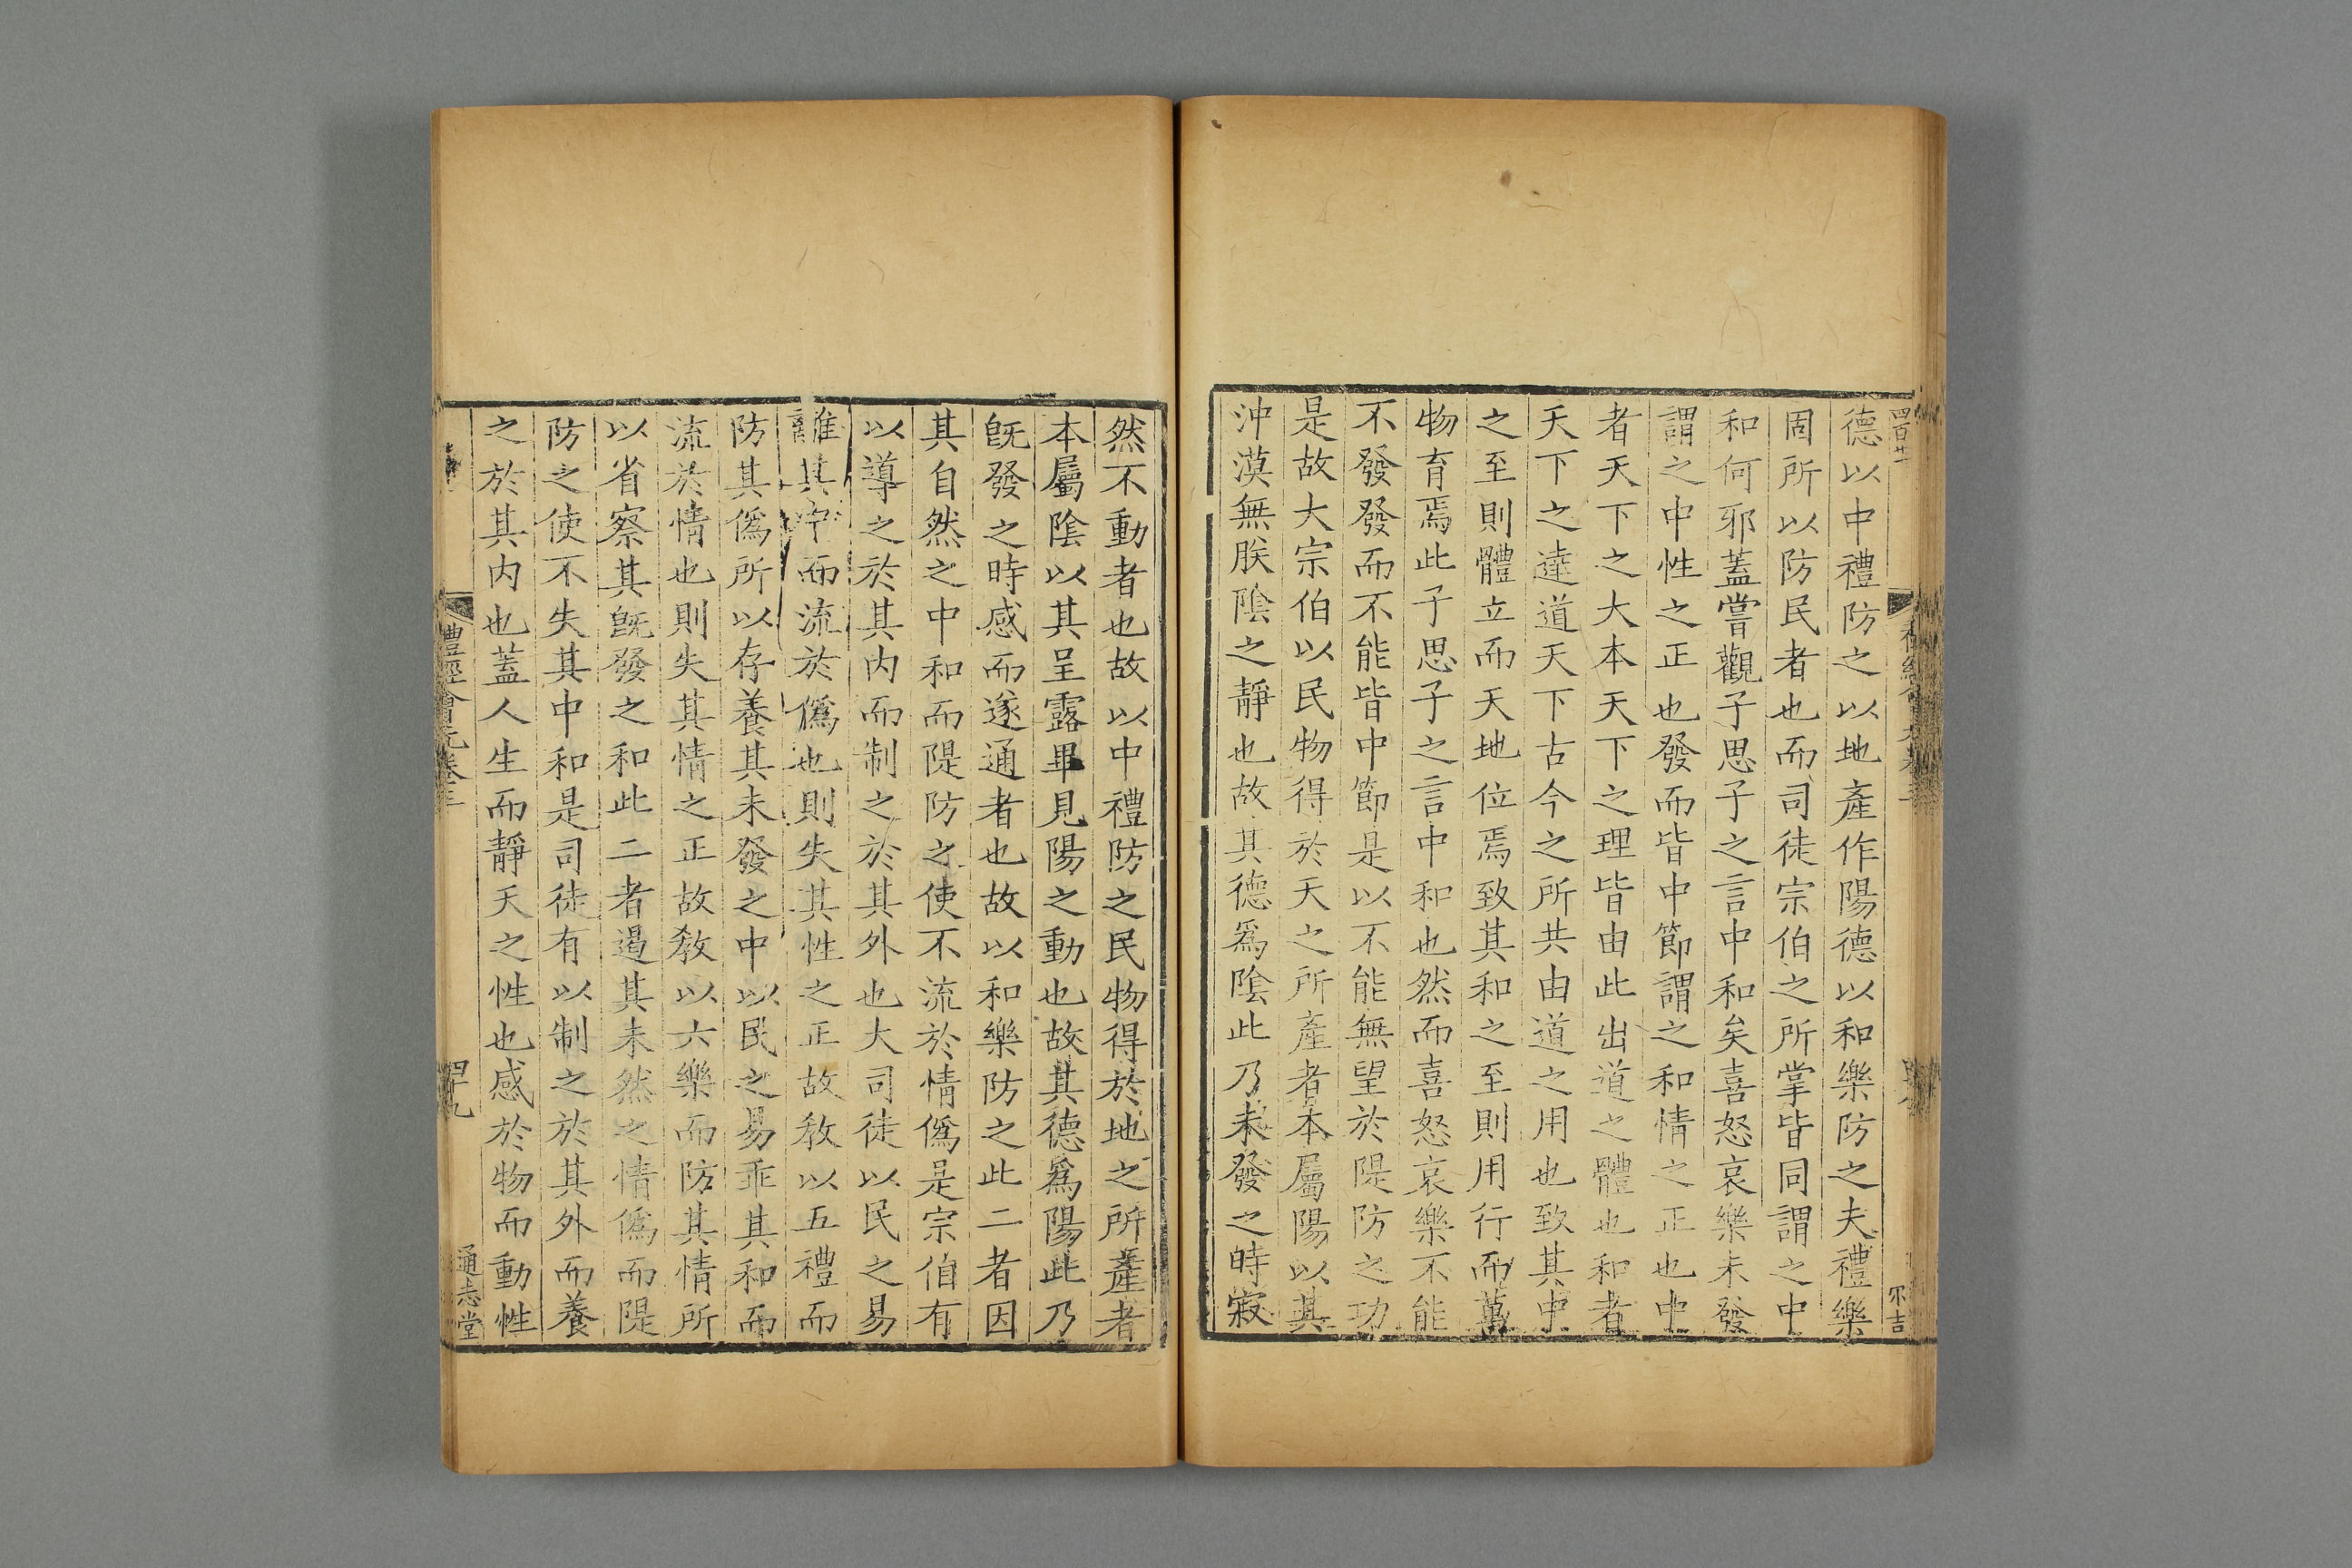 德以中禮防之以地產作陽德以和樂防之夫禮樂
固所以防民者也而司徒宗伯之所掌皆同謂之中
和何邪蓋嘗觀子思子之言中和矣喜怒哀樂未發
謂之中性之正也發而皆中節謂之和情之正也中
者天下之大本天下之理皆由此出道之體也和者
天下之達道天下古今之所共由道之用也致其中
之至則體立而天地位焉致其和之至則用行而萬
物育焉此子思子之言中和也然而喜怒哀樂不能
不發發而不能皆中節是以不能無望於隄防之功
是故大宗伯以民物得於天之所產者本屬陽以其
沖漠無朕陰之靜也故其德爲陰此乃未發之時寂
然不動者也故以中禮防之民物得於地之所產者
本屬陰以其呈露畢見陽之動也故其德爲陽此乃
旣發之時感而遂通者也故以和樂防之此二者因
其自然之中和而隄防之使不流於情僞是宗伯有
以導之於其內而制之於其外也大司徒以民之易
離其中而流於僞也則失其性之正故敎以五禮而
防其僞所以存養其未發之中以民之易乖其和而
流於情也則失其情之正故敎以六樂而防其情所
以省察其旣發之和此二者遏其未然之情僞而隄
防之使不失其中和是司徒有以制之於其外而養
之於其內也蓋人生而靜天之性也感於物而動性
禮經會元卷三
四十九
通志堂